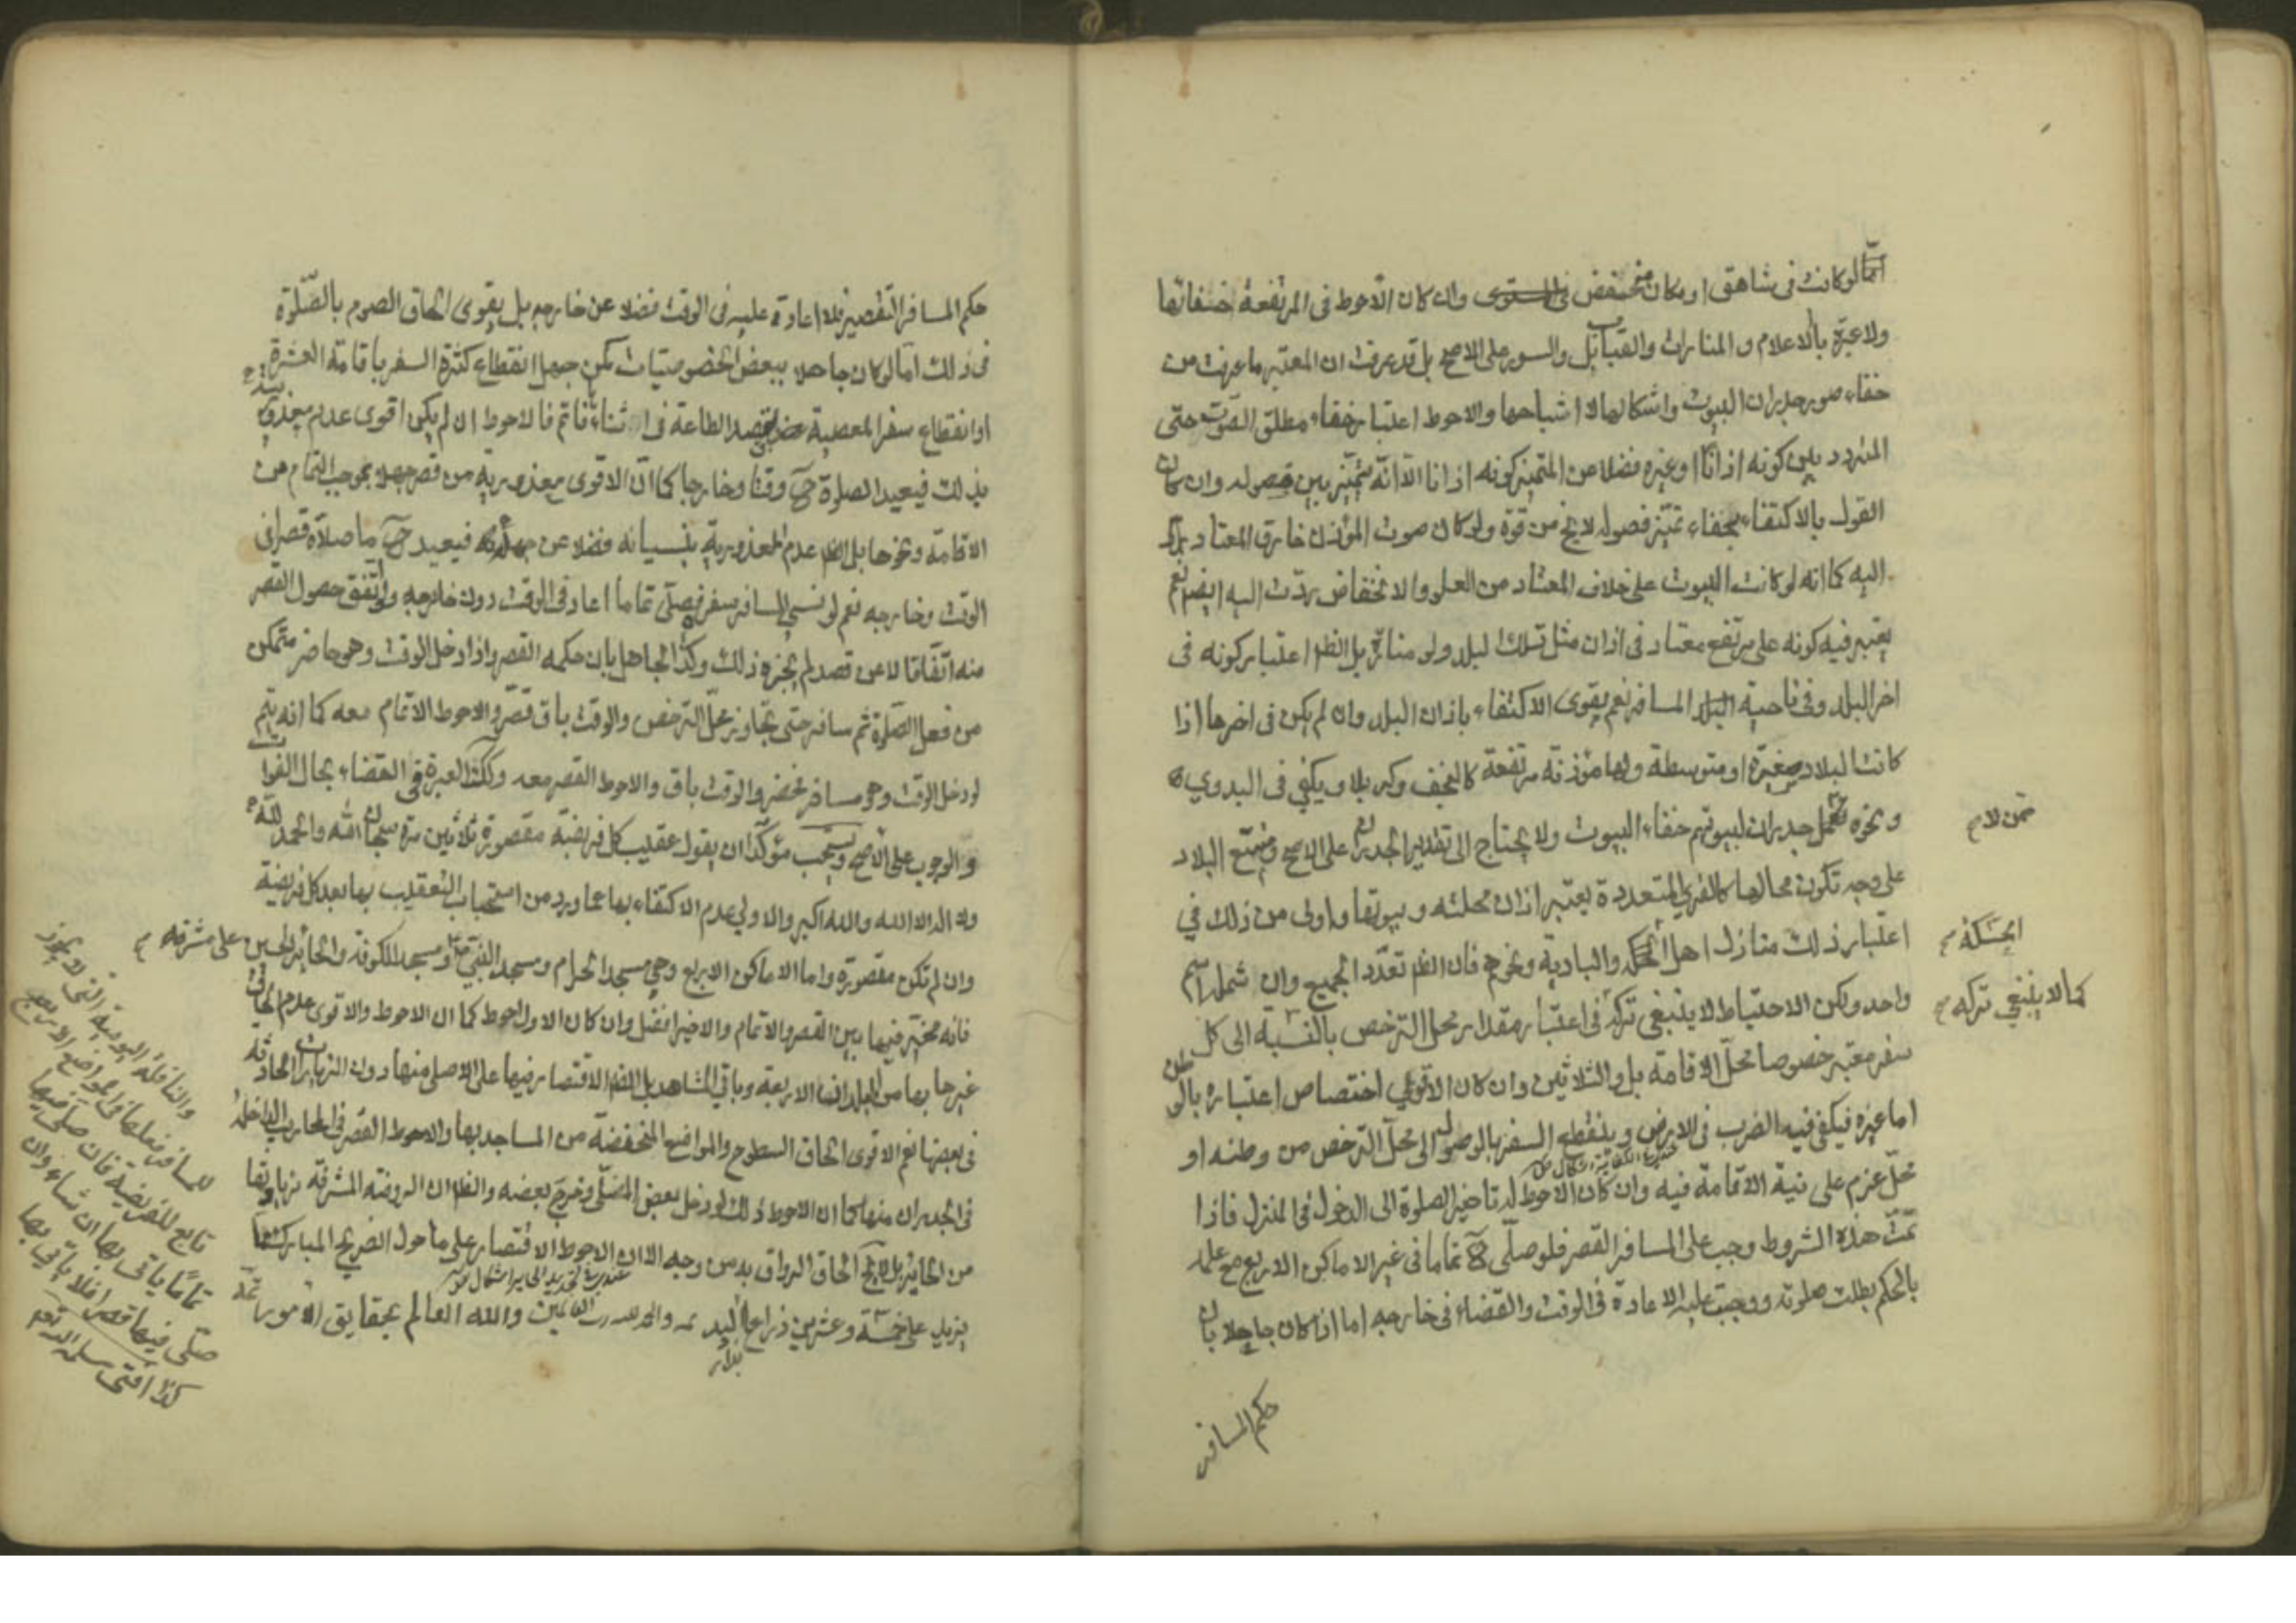 امّا لو كانت فى شاهق او مكان منخفض فى المستوى وان كان الاحوط فى المرتفعة خفائها
ولا عبرة بالاعلام و المنارات والقباب بل والسور على الاصح بل قد عرفت ان المعتبر ما عرفت من
خفاء صور جدران البيوت واشكالها لا اشباحها والاحوط اعتبار خفاء مطلق الصوت حتى
المتردد بين كونه اذانا او غيره فضلا عن المتميز كونه اذانا الا انه متميز بين فصوله وان كان
القول بالاكتفاء بخفاء تميّز فصوله لا يخ من قوة ولو كان صوت المؤذن خارق المعتاد يرد
اليه كما انه لو كانت البيوت على خلاف المعتاد من العلو والانخفاض ردّت اليه ايضا نعم
يعتبر فيه كونه على مرتفع معتاد فى اذان مثل تلك البلد ولو منارة بل الظ اعتبار كونه فى
اخر البلد وفى ناحية المسافر نعم يقوى الاكتفاء باذان البلد وان لم يكن فى اخرها اذا
كانت البلاد صغيرة او متوسطة ولها مؤذنة مرتفعة كالنجف وكربلا ويكفي فى البدوي
ونحوه ممن لا جدران لبيوتهم خفاء البيوت ولا يحتاج الى تقدير الجدران على الاصح ومتسع البلاد
على وجه تكون محالها كالقرى المتعددة يعتبر اذان محلته وبيوتها واولى من ذلك في
اعتبار ذلك منازل اهل الحسكة والبادية ونحوهم فان الظ تعدد الجميع وان شملها اسم
واحد ولكن الاحتياط لا ينبغي تركه فى اعتبار مقدار محل الترخص بالنسبة الى كل
سفر معتبر خصوصا محلّ الاقامة بل والثلاثين وان كان الاقوى اختصاص اعتباره بالوطن
اما غيره فيكفى فيه الضرب فى الارض وينقطع السفر بالوصول الى محلّ الترخص من وطنه او
محلّ عزم على نية الاقامة فيه وان كان الاحوط له تاخير الصلوة الى الدخول فى المنزل فاذا
تمّت هذه الشروط وجب على المسافر القصر فلو صلّى ح تماما فى غير الاماكن الاربع مع علمه
بالحكم بطلت صلوته ووجبت عليه الاعادة فى الوقت والقضاء فى خارجه اما اذا كان جاهلا بان
حكم المسافر
ممن لا
الحسكة
كما لا ينبغي تركه
حكم المسافر التقصير فلا اعادة عليه فى الوقت فضلا عن خارجه بل يقوى الحاق الصوم بالصّلوة
فى ذلك امّا لو كان جاهلا ببعض الخصوصيّات كمن جهل انقطاع كثرة السفر باقامة العشرة
او انقطاع سفر المعصية بقصد الطاعة فى الاثناء فاتم فالاحوط ان لم يكن اقوى عدم معذوريته
بذلك فيعيد الصلوة ح وقتا وخارجا كما انّ الاقوى معذورية من قصر جهلا بموجب التمام من
الاقامة ونحوها بل الظ عدم المعذورية بنسيانه فضلا عن جهله فيعيد ح ما صلّاه قصرا فى
الوقت وخارجه نعم لو نسي المسافر سفره فصلّى تماما اعاد فى الوقت دون خارجه ولو اتفق حصول القصر
منه اتّفاقا لا عن قصد لم يجزه ذلك وكذا الجاهل بان حكمه القصر واذا دخل الوقت وهو حاضر متمكن
من فعل الصّلوة ثم سافر حتى تجاوز محلّ الترخص والوقت باق قصّر والاحوط الاتمام معه كما انه يتم
لو دخل الوقت وهو مسافر فحضر والوقت باق والاحوط القصر معه وكذا العبرة فى القضاء بحال الفوات
والوجوب على الاصح ويستحب مؤكّدا ان يقول عقيب كل فريضة مقصورة ثلاثين مرة سبحان الله والحمد لله
ولا اله الا الله والله اكبر والاولى عدم الاكتفاء بها عما ورد من استحباب التعقيب بها بعد كل فريضة
وان لم تكن مقصورة واما الاماكن الاربع وهي مسجد الحرام ومسجد النبي ص ومسجد الكوفة والحائر الحسين على مشرفه
فانه مخيّر فيها بين القصر والاتمام والاخير افضل وان كان الاول احوط كما ان الاحوط والاقوى عدم الحاق
غيرها بها من البلدان الاربعة وباقي المشاهد بل الظ الاقتصار فيها على الاصل منها دون الزيادات الحادثة
فى بعضها نعم الاقوى الحاق السطوح والمواضع المنخفضة من المساجد بها والاحوط القصر فى المحاريب الداخلة
فى الجدران منها كما ان الاحوط ذلك لو دخل بعض المصلّى وخرج بعضه والظ ان الروضة المشرفة
من الحاير بل الحاق الرواق به من وجه الا ان الاحوط الاقتصار على ما حول الضريح المبارك
يزيد على خمسة وعشرين ذراعا باليد والحمد لله رب العالمين والله العالم بحقايق الامور
والنافلة اليومية التى لا يجوز
للمسافر فعلها فى المواضع الاربع
تابع للفريضة فان صلى فيها
تماما ياتى بها ان شاء وان
صلى فيها قصرا فلا ياتى بها
كذا افتى سلمه الله تعم